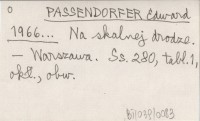 O
PASSENDORFER Edward
1966... Na skalnej drodze.
— Warszawa. Ss. 280, tabl. 1,
okł., obw.